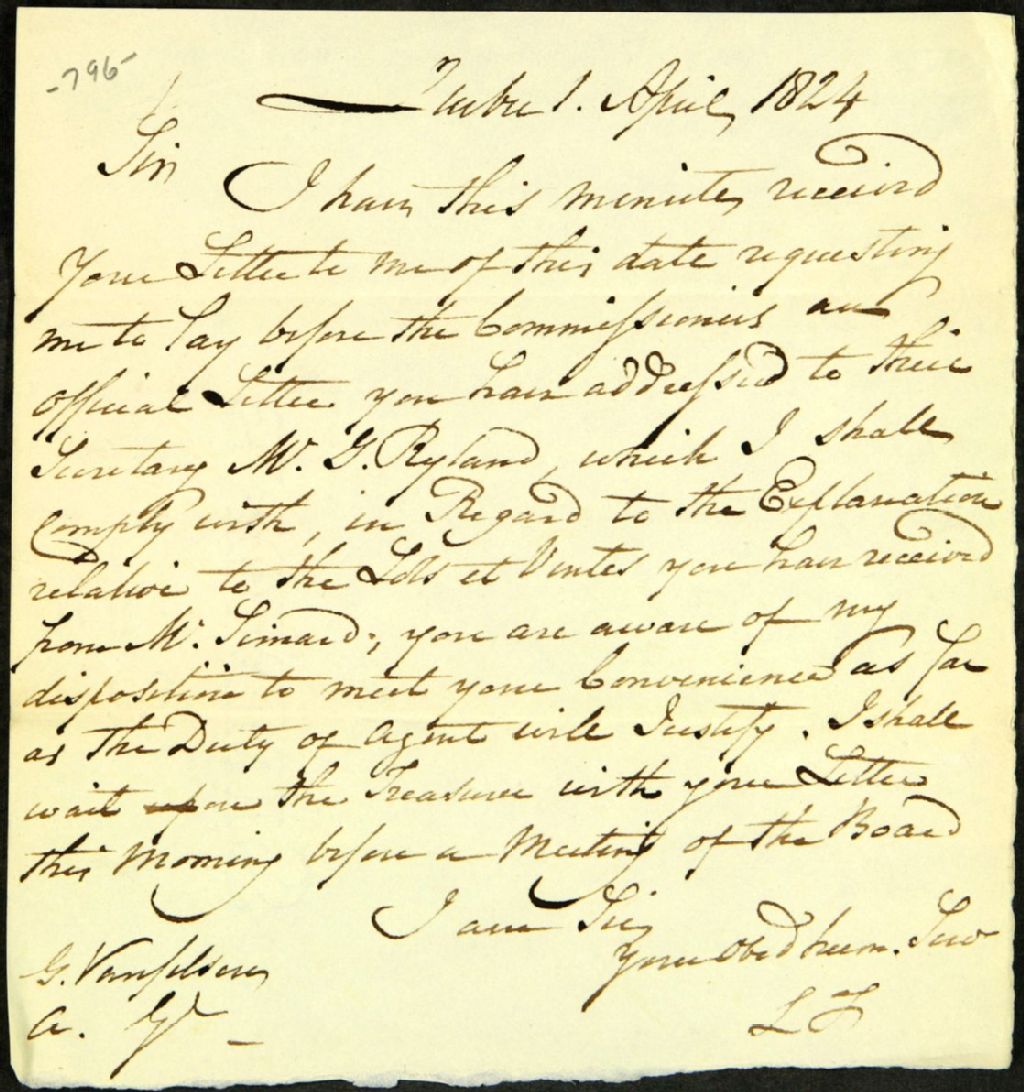 -796-
Quebec 1. April, 1824
Sir
I have this minute, received
Your Letter to me of this date requesting
me to lay before the Commissioners an
official Letter you have addressed to their
Secretary Mr. G. Ryland, which I shall
comply with, in Regard to the Explanation
relative to the Lods et Ventes you have received
from Mr. Simard, you are aware of my
disposition to meet your Convenience as far
as the Duty of Agent will Justify. I shall
wait upon the Treasurer with your Letter
this Morning before a Meeting of the Board
I am Sir,
Your Obed hum. Serv
G. Vanfelson,
A. Gl
L F